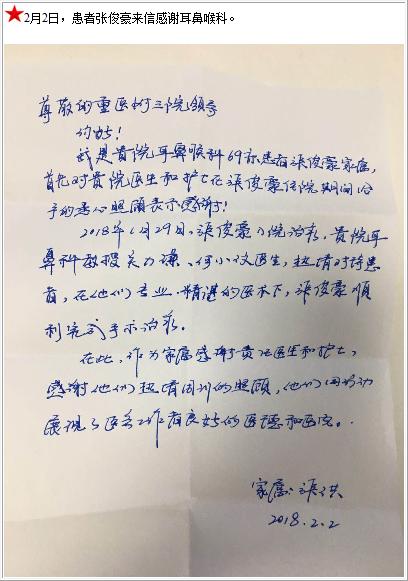 ★2月2日，患者张俊豪来信感谢耳鼻喉科。
尊敬的重医附三院领导
你好！
我是贵院耳鼻喉科69床患者张俊豪家属，
首先对贵院医生和护士在张俊豪住院期间给
予的关心照顾表示感谢！
2018年1月29日，张俊豪入院治疗，贵院耳
鼻科教授关力谦、何小汶医生，热情对待患
者，在他们专业、精湛的医术下，张俊豪顺
利完成手术治疗。
在此，作为家属感谢贵院医生和护士，
感谢他们热情周到的照顾，他们用行动
展现了医务工作者良好的医德和医风。
家属：张洪
2018.2.2